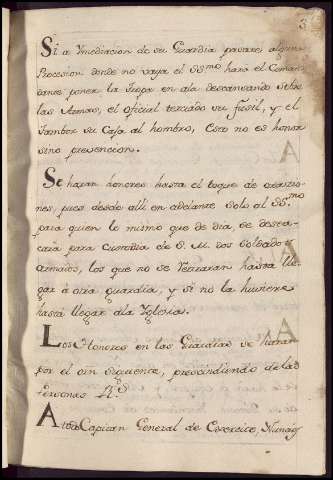 3
Si a Ymediacion de su Guardia pasare alguna
Procesion donde no vaya el SS.mo hará el Coman
dante poner la Tropa en ala descansando sobre
las Armas, el oficial terciado su fusil, y el
Tambor su Caja al hombro, esto no es honor
sino prevencion.
Se haran honores hasta el toque de oracio
nes, pues desde alli en adelante solo al SS.mo
para quien lo mismo que de dia, se desta
cará para Custodia de S. M. dos Soldados
armados, los que no se retiraran hasta lle
gar á otra guardia, y si no la huviere
hasta llegar ála Yglesia.
Los Honores en las Guardias se haran
por el orn siguiente, prescindiendo de las
Personas R.s
A todo Capitan General de Exercito, Nuncios